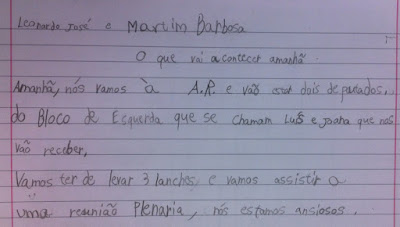 Leonardo José e Martim Barbosa
O que vai acontecer amanhã.
Amanhã, nós vamos à A.R. e vão estar dois deputados,
do Bloco de Esquerda que se chamam Luís e Joana que nos
vão receber.
Vamos ter de levar 3 lanches, e vamos assistir a
uma reunião Plenaria, nós estamos ansiosos.